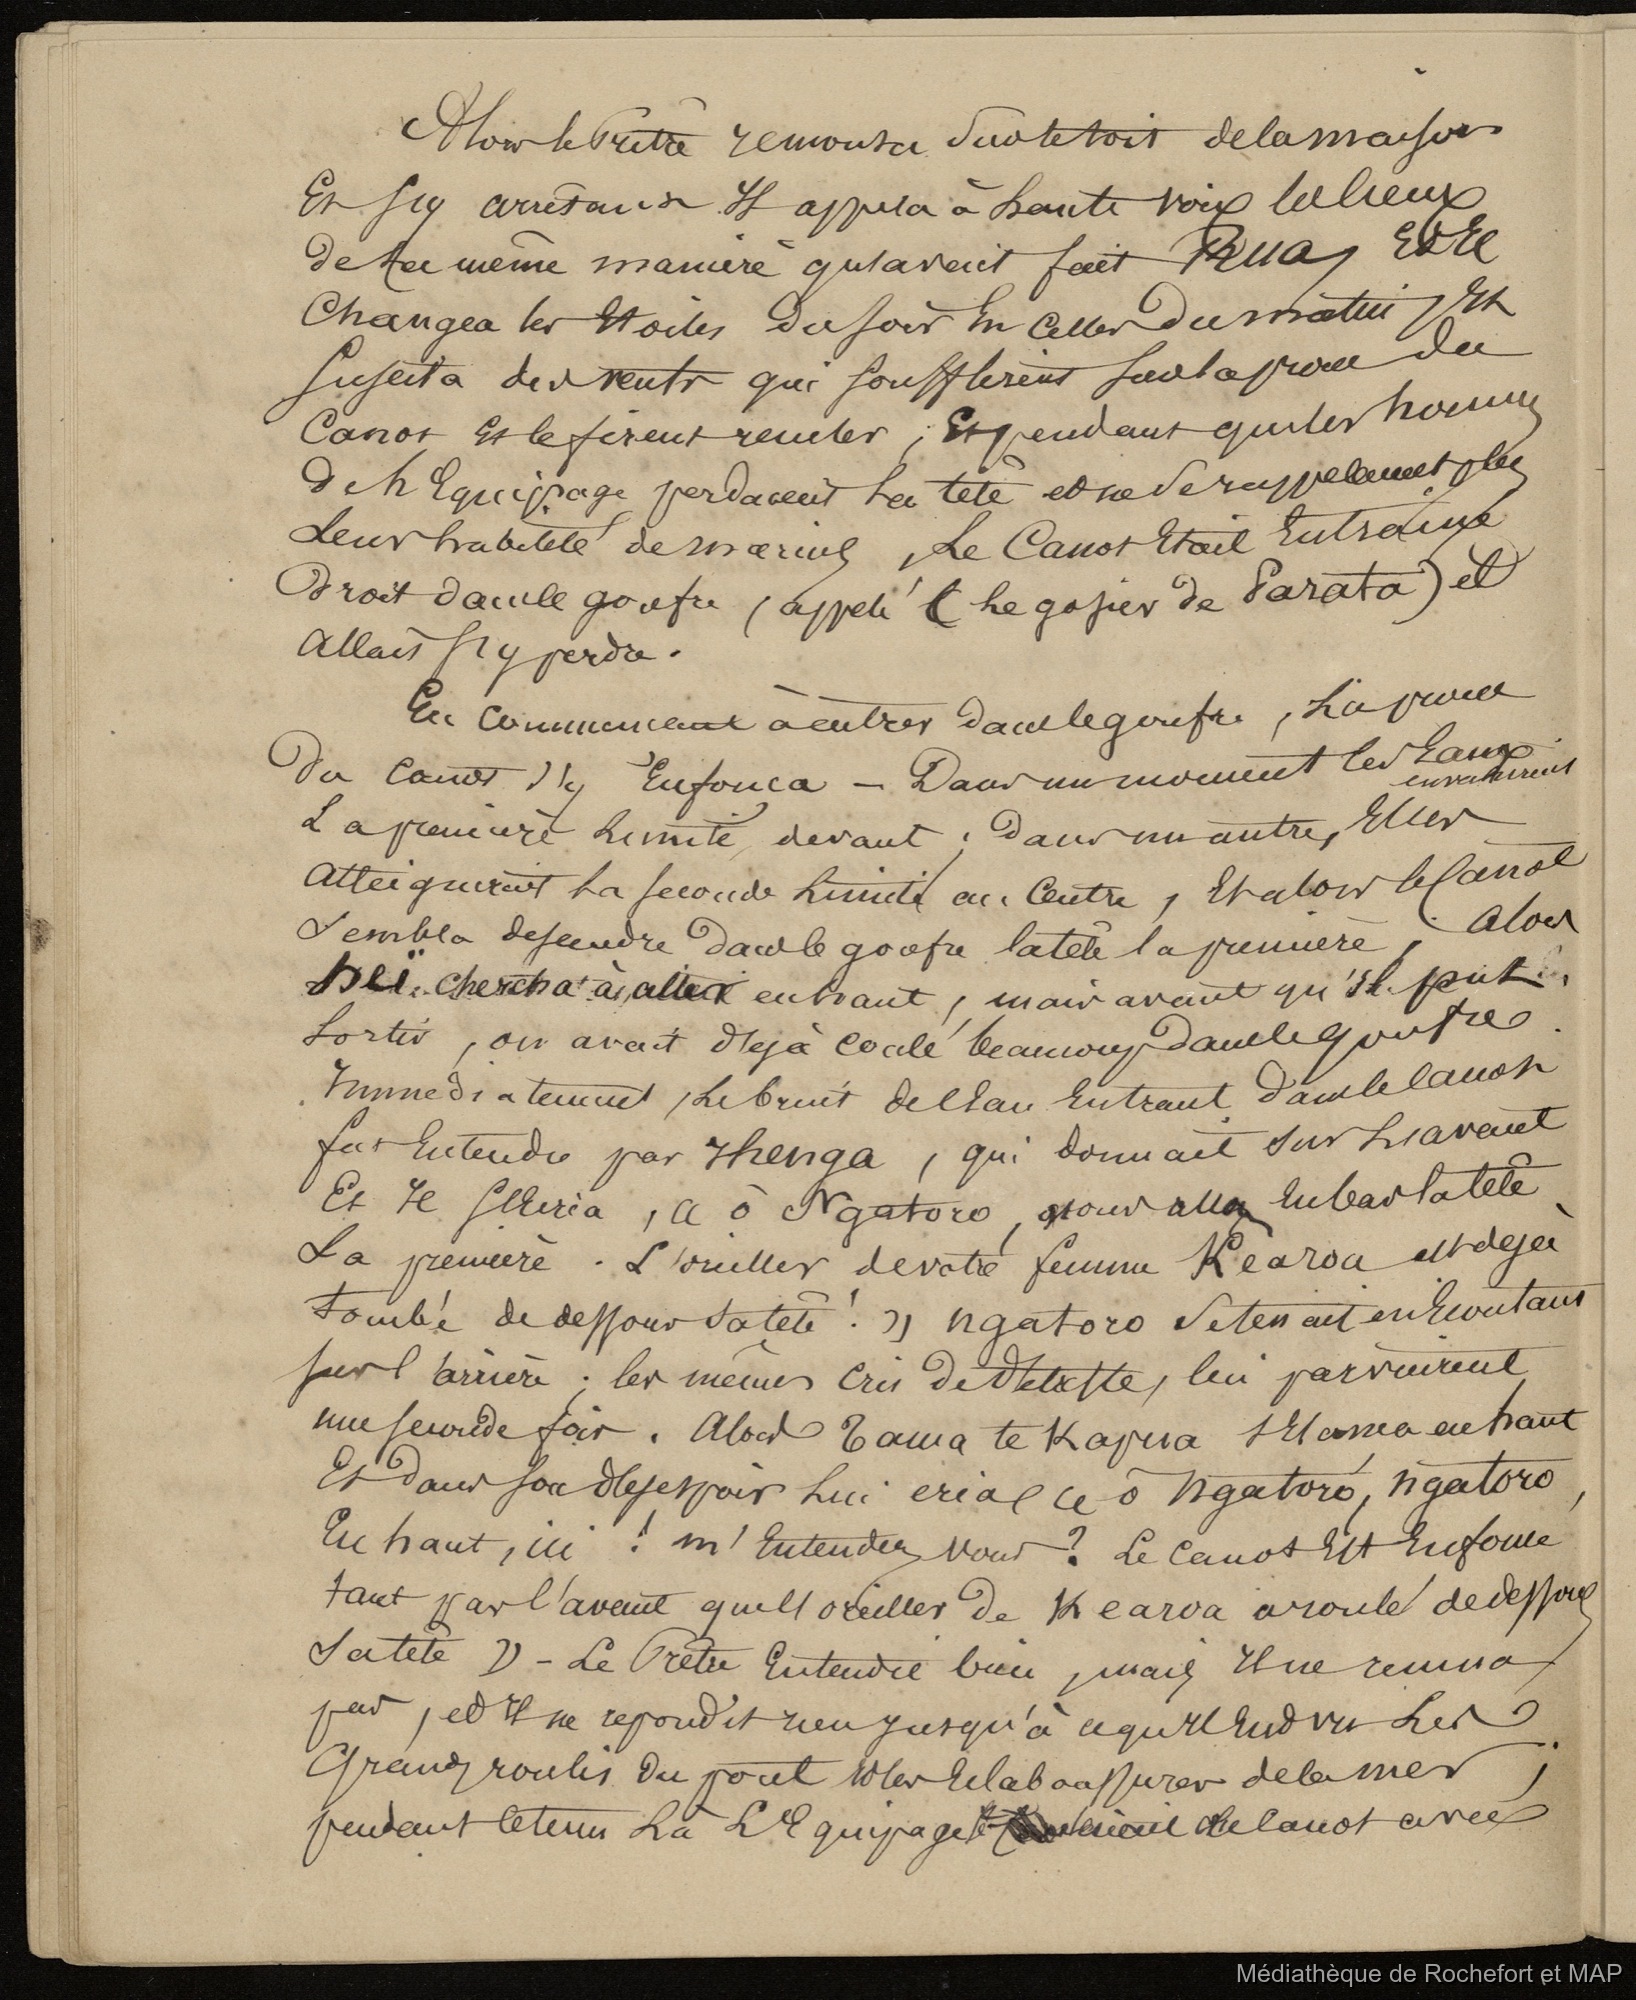 Alors le Prêtre remonta sur le toit de la maison
Et s'y arrêtant Il appela à haute voix les cieux
de la même manière qu'avait fait Rua, Et Il
Changea les Etoiles du soir En celles du matin, Et
suscita des vents qui soufflèrent sur la proue du
Canot Et le firent reculer ; Et pendant que les hommes
de l'Equipage perdaient la tête et ne se rappelaient plus
Leur habileté de marins, Le Canot Etait Entrainé
Droit dans le goufre, appelé ( Le gosier de Parata) et
Allait s'y perdre.
En commencant à entrer dans le goufre, La proue
Du canot s'y Enfonca - Dans un moment les Eaux
envahirent
La première limite, devant ; dans un autre, Elles
Atteignirent la seconde limite au Centre, Et alors le Canot
sembla descendre dans le goufre la tête la première, Alors
heï chercha à aller en haut, mais avant qu'il put
sortir, on avait déjà coulé beaucoup dans le goufre.
Immediatement, Le bruit de l'Eau Entrant dans le Canot
fut Entendu par Ihenga, qui donnait sur l'avant
Et Il s'Ecria, « ô Ngatoro, nous allons En bas la tête
La première. L'oreiller de votre femme Kearoa est dejà
tombé de dessous sa tête ! » Ngatoro se tenait en Ecoutant
sur l'arrière ; les mêmes cris de détresse, lui parvinrent
une seconde fois. Alors Tama te Kapua s'Elanca en haut
Et dans son désespoir lui cria « ô Ngatoro, Ngatoro,
En haut, ici ! m'Entendez vous ? Le canot Est Enfoncé
tant par l'avant que l'oreiller de Kearoa a roulé de dessous
sa tête » - Le Prêtre Entendit bien, mais Il ne remua
pas, et Il ne repondit rien jusqu'à ce qu'Il Entendit Les
Grands roulis du pont et les Eclaboussures de la mer ;
pendant le tems Là L'Equipage tenait le canot avec